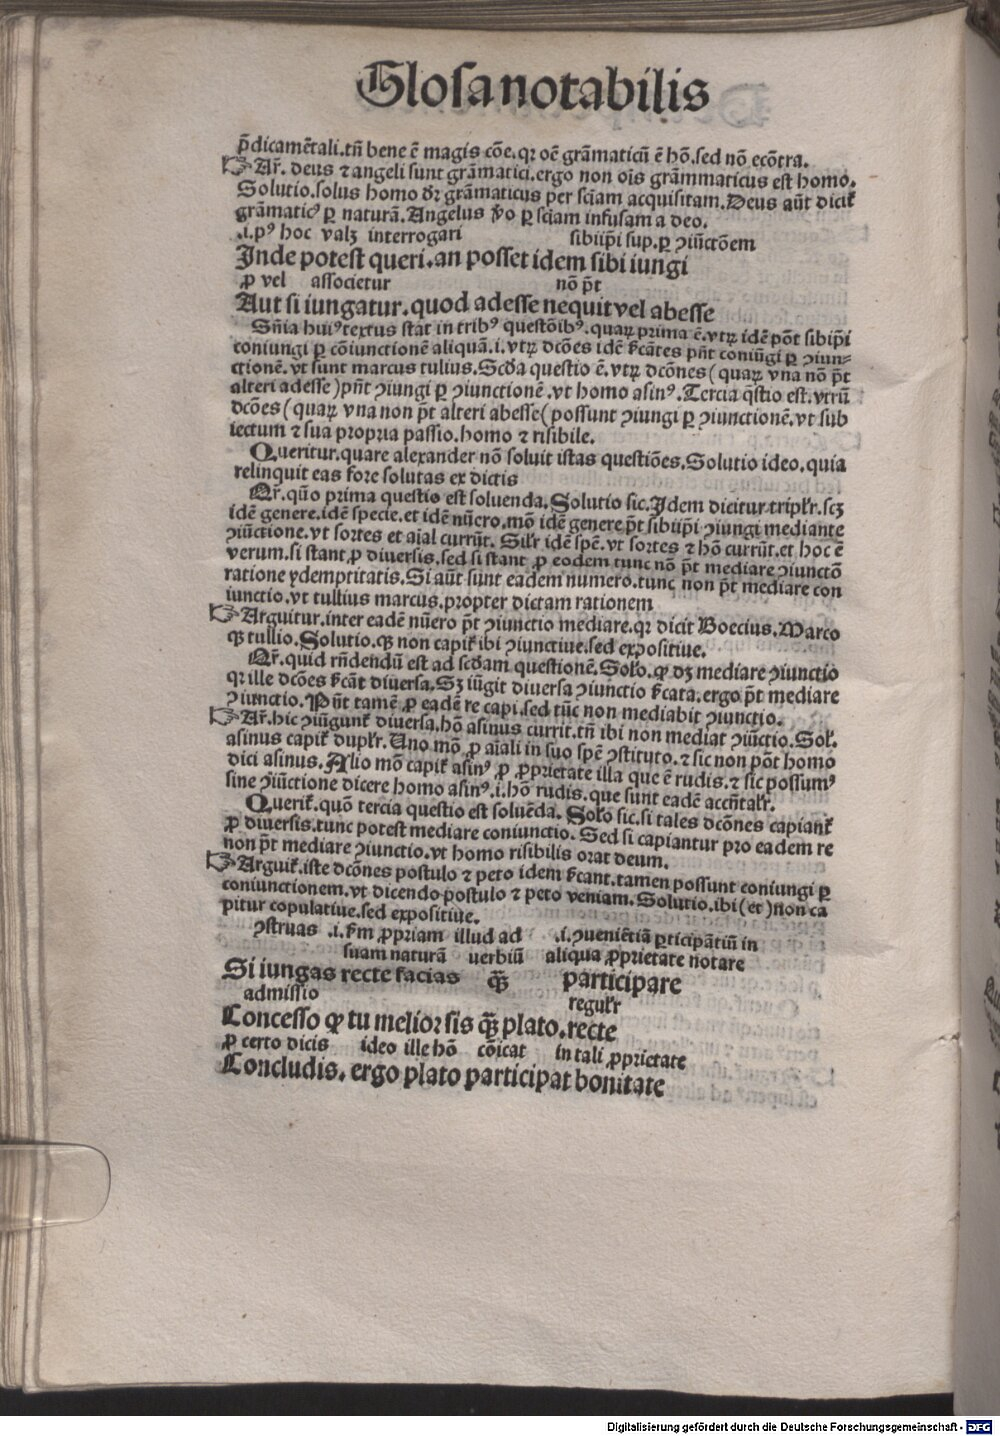 Glosa notabilis
p̄dicamētali.tn̄ bene ē magis cōe.qꝛ oē grāmaticū ē hō.sed nō ecōtra.
☞ Ar̄. deus ⁊ angeli sunt grāmatici.ergo non oīs grāmmaticus est homo.
Solutio.solus homo dr̄ grāmaticus per sciām acquisitam.Deus aūt dicit᷑
grāmaticꝰ ꝑ naturā.Angelus v̄o ꝑ sciam infusam a deo.
.i.pꝰ hoc valꝫ interrogari sibiip̄i sup.ꝑ ꝯiūctōem
Inde potest queri.an posset idem sibi iungi
ꝓ vel associetur nō p̄t
Aut si iungatur.quod adesse nequit vel abesse
Sn̄ia huiꝰ textus stat in tribꝰ questōibꝰ.quaꝝ prima ē.vtꝝ idē pōt sibiip̄i
coniungi ꝑ cōiunctionē aliquā.i.vtꝝ dcōes idē s̄cātes pn̄t coniūgi ꝑ ꝯiun⸗
ctionē.vt sunt marcus tulius.Scd̄a questio ē.vtꝝ dcōnes (quaꝝ vna nō p̄t
alteri adesse) pn̄t ꝯiungi ꝑ ꝯiunctionē.vt homo asinꝰ.Tercia q̄stio est.vtrū
dcōes (quaꝝ vna non p̄t alteri abesse( possunt ꝯiungi ꝑ ꝯiunctionē.vt sub
iectum ⁊ sua propria passio.homo ⁊ risibile.
Queritur.quare alexander nō soluit istas questiōes.Solutio ideo.quia
relinquit eas fore solutas ex dictis
Qr̄.quō prima questio est soluenda.Solutio sic.Idem dicitur triplr̄.scꝫ
idē genere.idē specie.et idē nūero.mō idē genere p̄t sibiip̄i ꝯiungi mediante
ꝯiūctione.vt sortes et aīal currūt. Silr̄ idē spē.vt sortes ⁊ hō currūt.et hoc ē
verum.si stant ꝓ diuersis.sed si stant ꝓ eodem tunc nō p̄t mediare ꝯiunctō
ratione ydemptitatis.Si aūt sunt eadem numero.tunc non p̄t mediare con
iunctio.vt tullius marcus.propter dictam rationem
☞ Arguitur.inter eadē nūero p̄t ꝯiunctio mediare.qꝛ dicit Boecius.Marco
qꝫ tullio.Solutio.qꝫ non capit᷑ ibi ꝯiunctiue.sed expositiue.
Qr̄.quid rn̄dendū est ad scd̄am questionē.Solo.ꝙ dꝫ mediare ꝯiunctio
qꝛ ille dcōes s̄cāt diuersa.Sꝫ iūgit diuersa ꝯiunctio s̄cata.ergo p̄t mediare
ꝯiunctio.Pn̄t tamē ꝓ eadē re capi.sed tūc non mediabit ꝯiunctio.
☞ Ar̄.hic ꝯiūgunt᷑ diuersa.hō asinus currit.tn̄ ibi non mediat ꝯiūctio.Sol̄.
asinus capit᷑ duplr̄.Uno mō ꝓ aīali in suo spē ꝯstituto.⁊ sic non pōt homo
dici asinus.Alio mō capit᷑ asinꝰ ꝓ ꝓprietate illa que ē rudis.⁊ sic possumꝰ
sine ꝯiūctione dicere homo asinꝰ.i.hō rudis.que sunt eadē accn̄talr̄.
Querit᷑.quō tercia questio est soluēda. Solo sic.si tales dcōnes capiant᷑
ꝓ diuersis.tunc potest mediare coniunctio. Sed si capiantur pro eadem re
non p̄t mediare ꝯiunctio.vt homo risibilis orat deum.
☞ Arguit᷑.iste dcōnes postulo ⁊ peto idem s̄cant.tamen possunt coniungi ꝑ
coniunctionem.vt dicendo postulo ⁊ peto veniam.Solutio.ibi (et )non ca
pitur copulatiue.sed expositiue.
ꝯstruas .i.s̄m ꝓpriam illud ad .i.ꝯueniētiā ꝑticipātiū in
suam naturā uerbiū aliqua ꝓprietate notare
Si iungas recte facias qꝫ̄ participare
admissio regulr̄
Concesso ꝙ tu melior sis qꝫ̄ plato.recte
ꝓ certo dicis ideo ille hō cōicat in tali ꝓprietate
Concludis.ergo plato participat bonitate
Digitalisierung gefördert durch die Deutsche Forschungsgemeinschaft - DFG